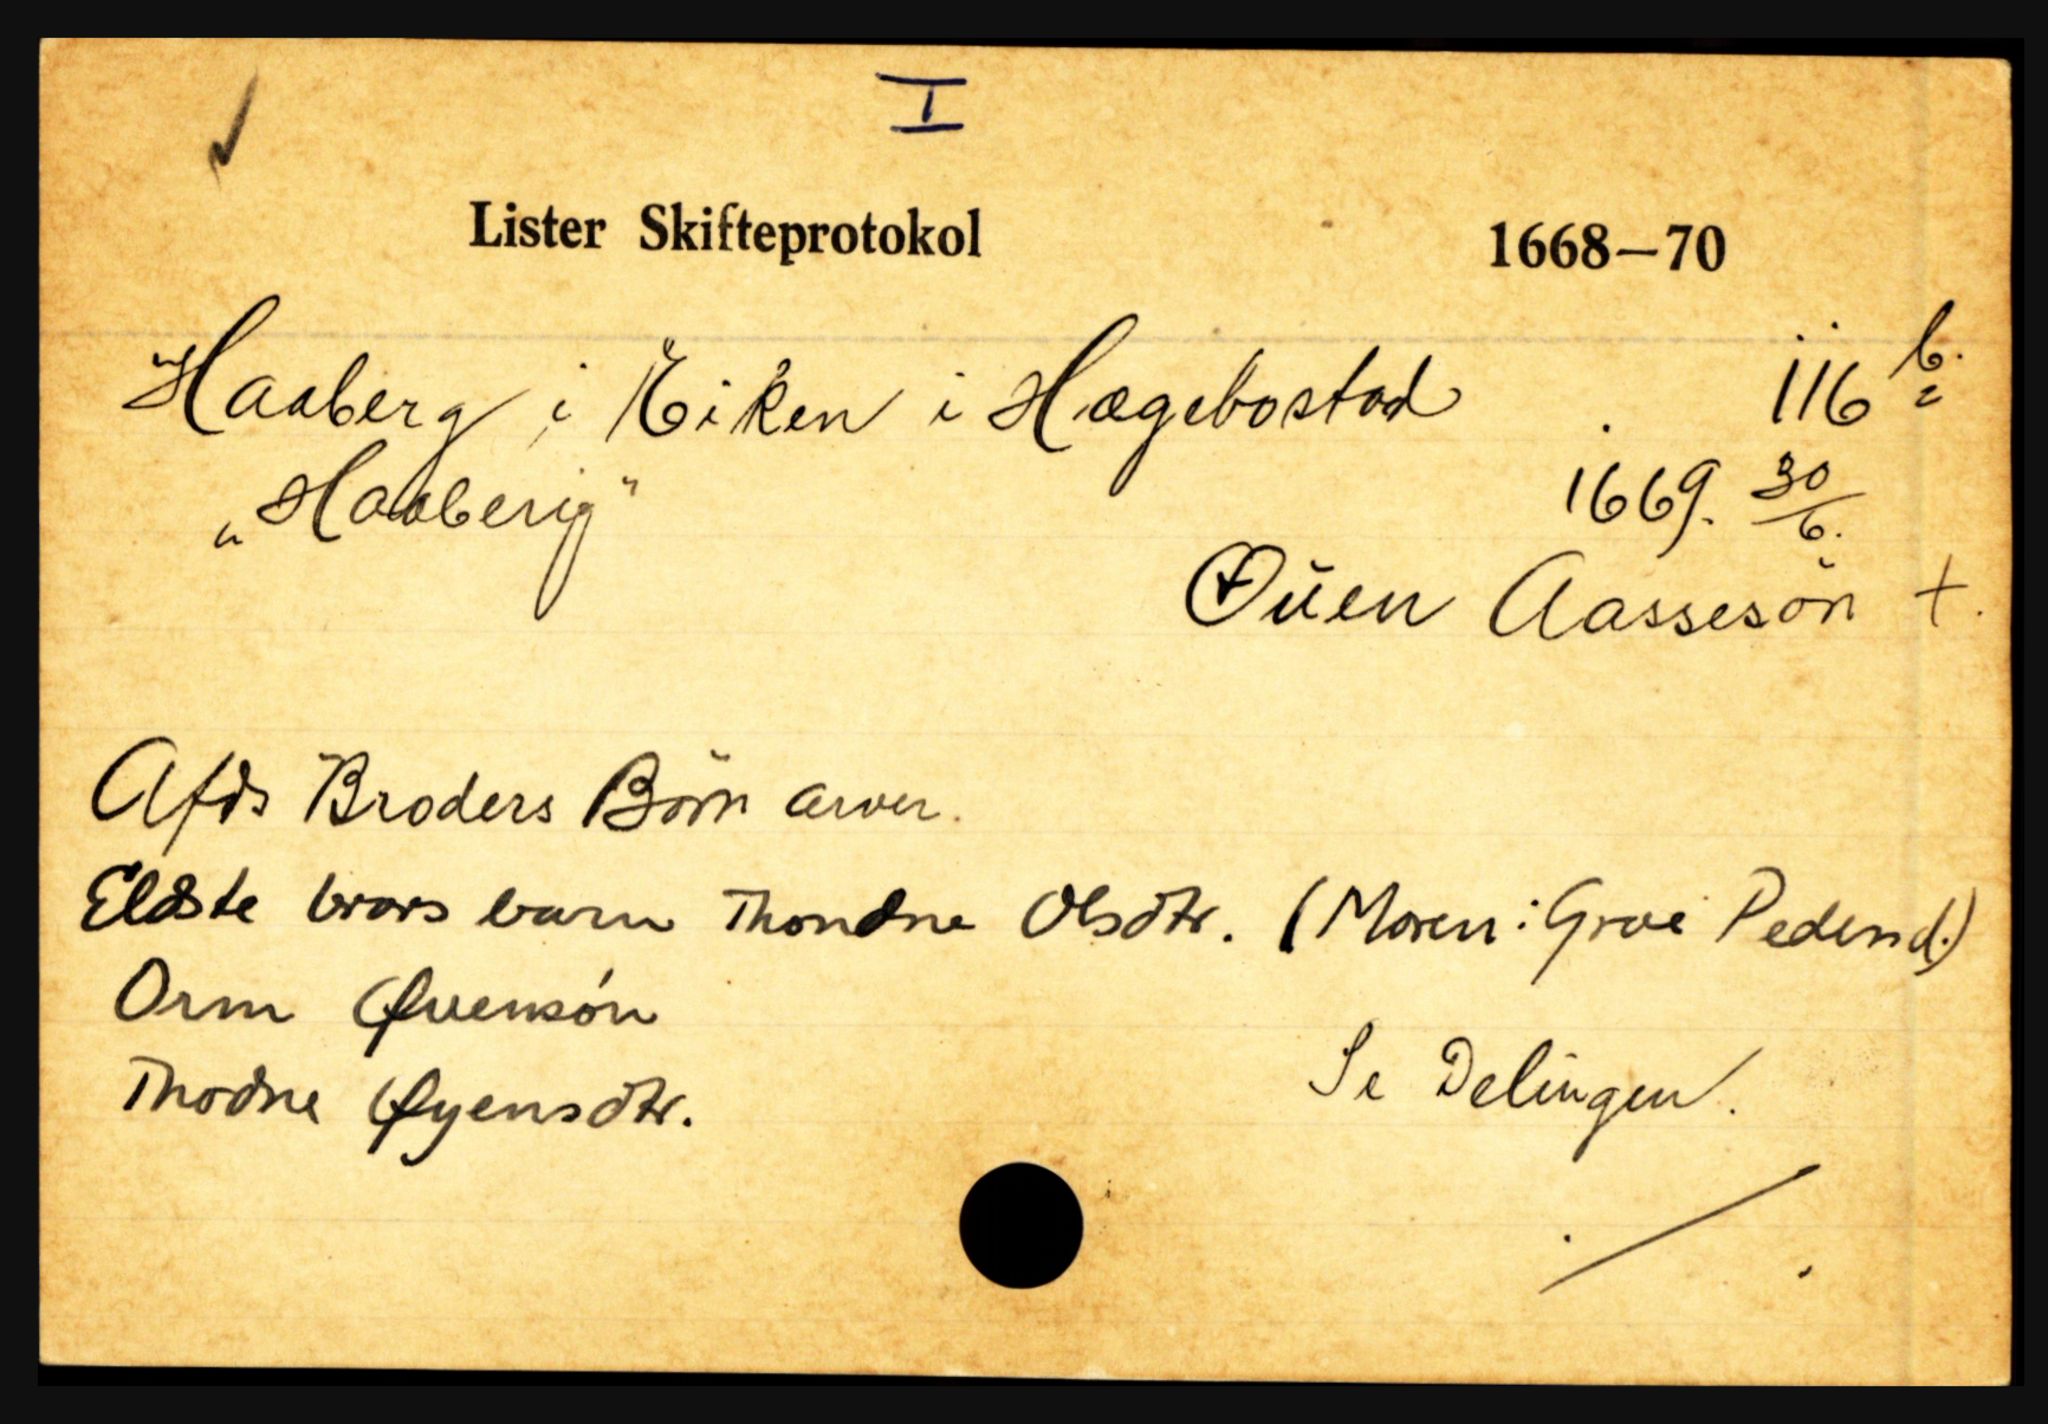 I
Lister Skifteprotokol 1668–70
Haaberg i Eiken i Hægebostad 116 b.
„Haaberig" 1669. 30/6.
Øuen Aassesön +.
Afds Broders Börn arver.
Eldste brors barn Thondne Olsdtr. (Moren: Groe Pedersd.)
Orm Øuensón
Thodne Øyensdtr. Se Delingen.